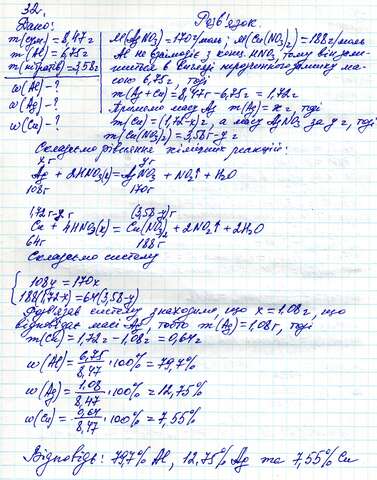 32.
Дано:
m(сум) = 8,47 г
m(Al) = 6,75 г
m(нітратів) = 3,58 г
w(Al) - ?
w(Ag) - ?
w(Cu) - ?
Розв'язок.
M(AgNO3) = 170 г/моль; M(Cu(NO3)2) = 188 г/моль
Al не взаємодіє з конц. HNO3, тому він зали-
шиться в вигляді нерозчинного залишку ма-
сою 6,75 г, тоді
m(Ag + Cu) = 8,47 г - 6,75 г = 1,72 г
Приймемо масу Ag m(Ag) = x г, тоді
m(Cu) = (1,72 - x) г, а масу AgNO3 за y г, тоді
m(Cu(NO3)2) = 3,58 г - y г
Складаємо рівняння хімічних реакцій:
x г y г
Ag + 2HNO3(к) = AgNO3 + NO2↑ + H2O
108 г 170 г
1,72 г - x г (3,58 - y) г
Cu + 4HNO3(к) = Cu(NO3)2 + 2NO2↑ + 2H2O
64 г 188 г
Складаємо систему
108y = 170x
188(1,72 - x) = 64(3,58 - y)
Розв'язав систему знаходимо, що x = 1,08 г, що
відповідає масі Ag, тобто m(Ag) = 1,08 г, тоді
m(Cu) = 1,72 - 1,08 = 0,64 г
w(Al) = 6,75/8,47 · 100% = 79,7%
w(Ag) = 1,08/8,47 · 100% = 12,75%
w(Cu) = 0,64/8,47 · 100% = 7,55%
Відповідь: 79,7% Al, 12,75% Ag та 7,55% Cu